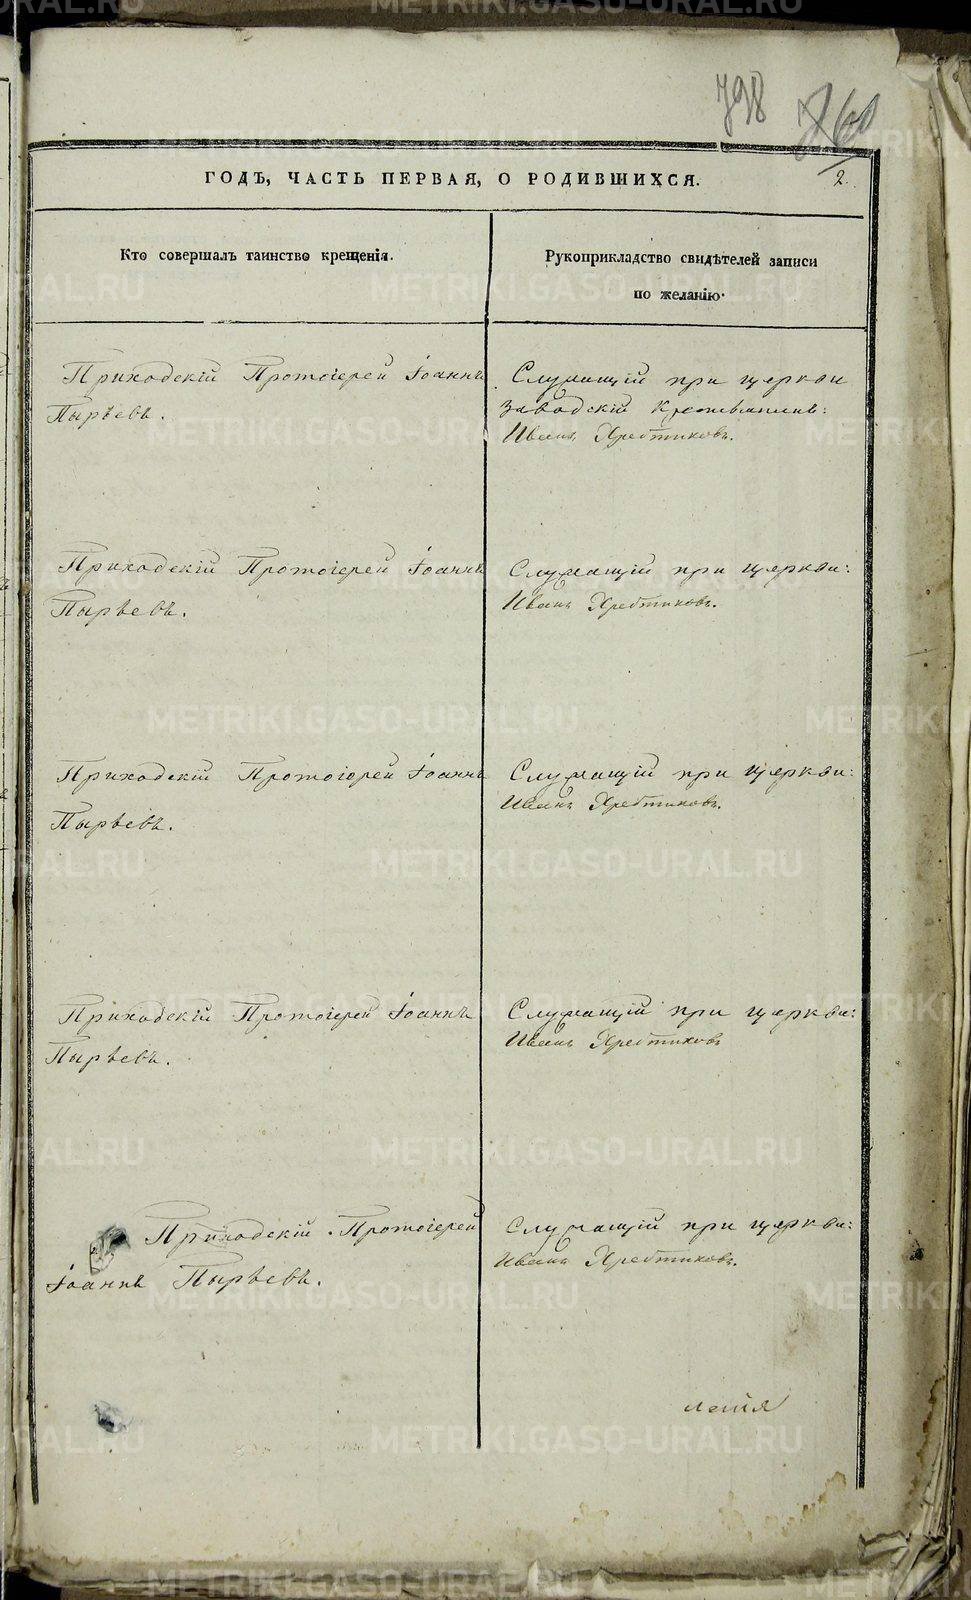 798 760
ГОДЪ, ЧАСТЬ ПЕРВАЯ, О РОДИВШИХСЯ. 2.
Кто совершалъ таинство крещенія.
Рукоприкладство свидѣтелей записи
по желанію.
Приходскій Протоіерей Іоаннъ
Пырьевъ.
Служащій при церкви
заводскій
Иванъ Хребтиковъ.
Приходскій Протоіерей Іоаннъ
Пырьевъ.
Служащій при церкви:
Иванъ Хребтиковъ.
Приходскій Протоіерей Іоаннъ
Пырьевъ.
Служащій при церкви:
Иванъ Хребтиковъ.
Приходскій Протоіерей Іоаннъ
Пырьевъ.
Служащій при церкви:
Иванъ Хребтиковъ
Приходскій Протоіерей
Іоаннъ Пырьевъ.
Служащій при церкви:
Иванъ Хребтиковъ.
METRIKI.GASO-URAL.RU